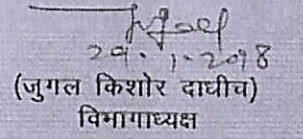 29.1.2018
(जुगल किशोर दाधीच)
विभागाध्यक्ष